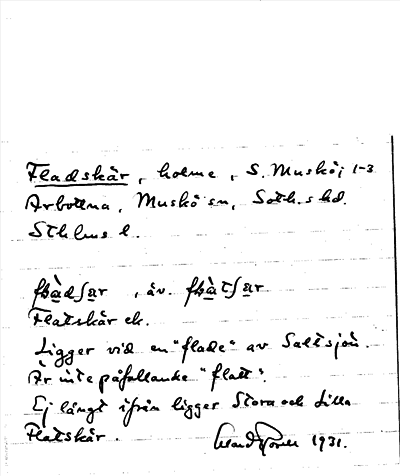 Fladskär, holme, S. Muskö; 1-3
Arbottna, Muskö sn, Soth.s hd.
Sthlms l.
, äv.
Flatskär ek.
Ligger vid en "flade" av Saltsjön.
Är inte påfallande "flatt".
Ej långt ifrån ligger Stora och Lilla
Flatskär. 1931.